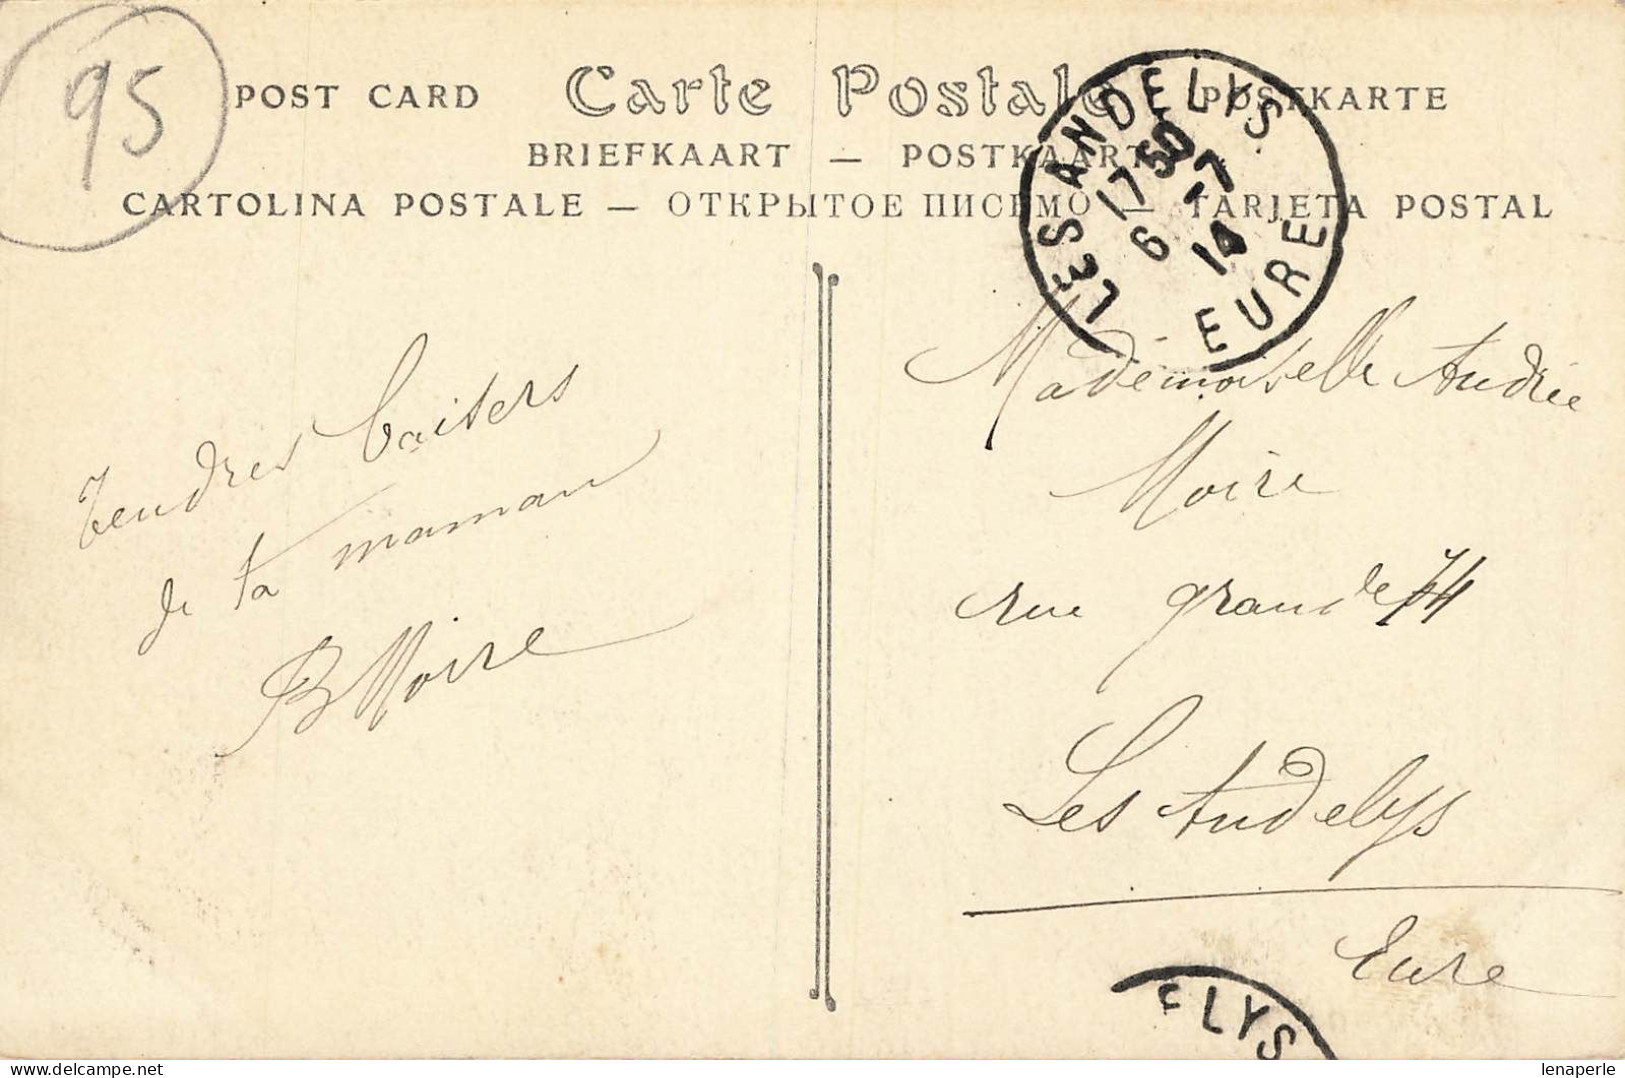 95
POST CARD Carte Postale POSTKARTE
BRIEFKAART — POSTKAART
CARTOLINA POSTALE — ОТКРЫТОЕ ПИСЬМО — TARJETA POSTAL
LES ANDELYS
17 50
6 - 7
14
EURE
Tendres baisers
de ta maman
B Moire
Mademoiselle Andrée
Moire
rue grande 74
Les Andelys
Eure
ELYS
lenaperle